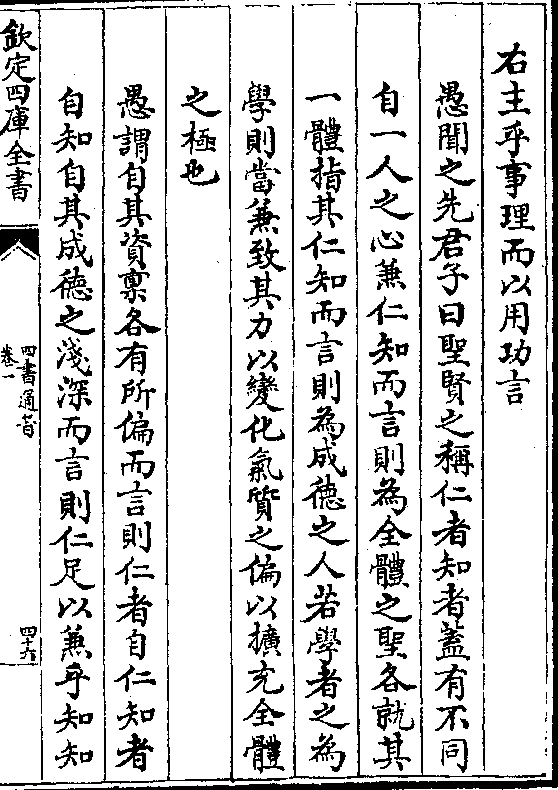 右主乎事理而以用功言
愚聞之先君子曰聖賢之稱仁者知者蓋有不同
自一人之心兼仁知而言則為全體之聖各就其
一體指其仁知而言則為成德之人若學者之為
學則當兼致其力以變化氣質之偏以擴充全體
之極也
愚謂自其資禀各有所偏而言則仁者自仁知者
自知自其成德之淺深而言則仁足以兼乎知知
欽定四庫全書
四書通旨
卷一
四十六